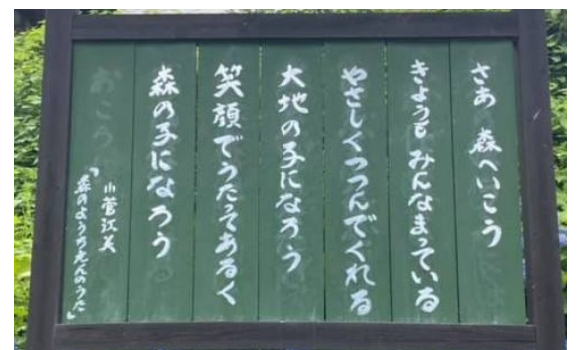 さあ 森へいこう
きょうも みんなまっている
やさしくつつんでくれる
大地の子になろう
笑顔でうたそあるく
森の子になろう
小菅江美
「森のようちえんのうた」